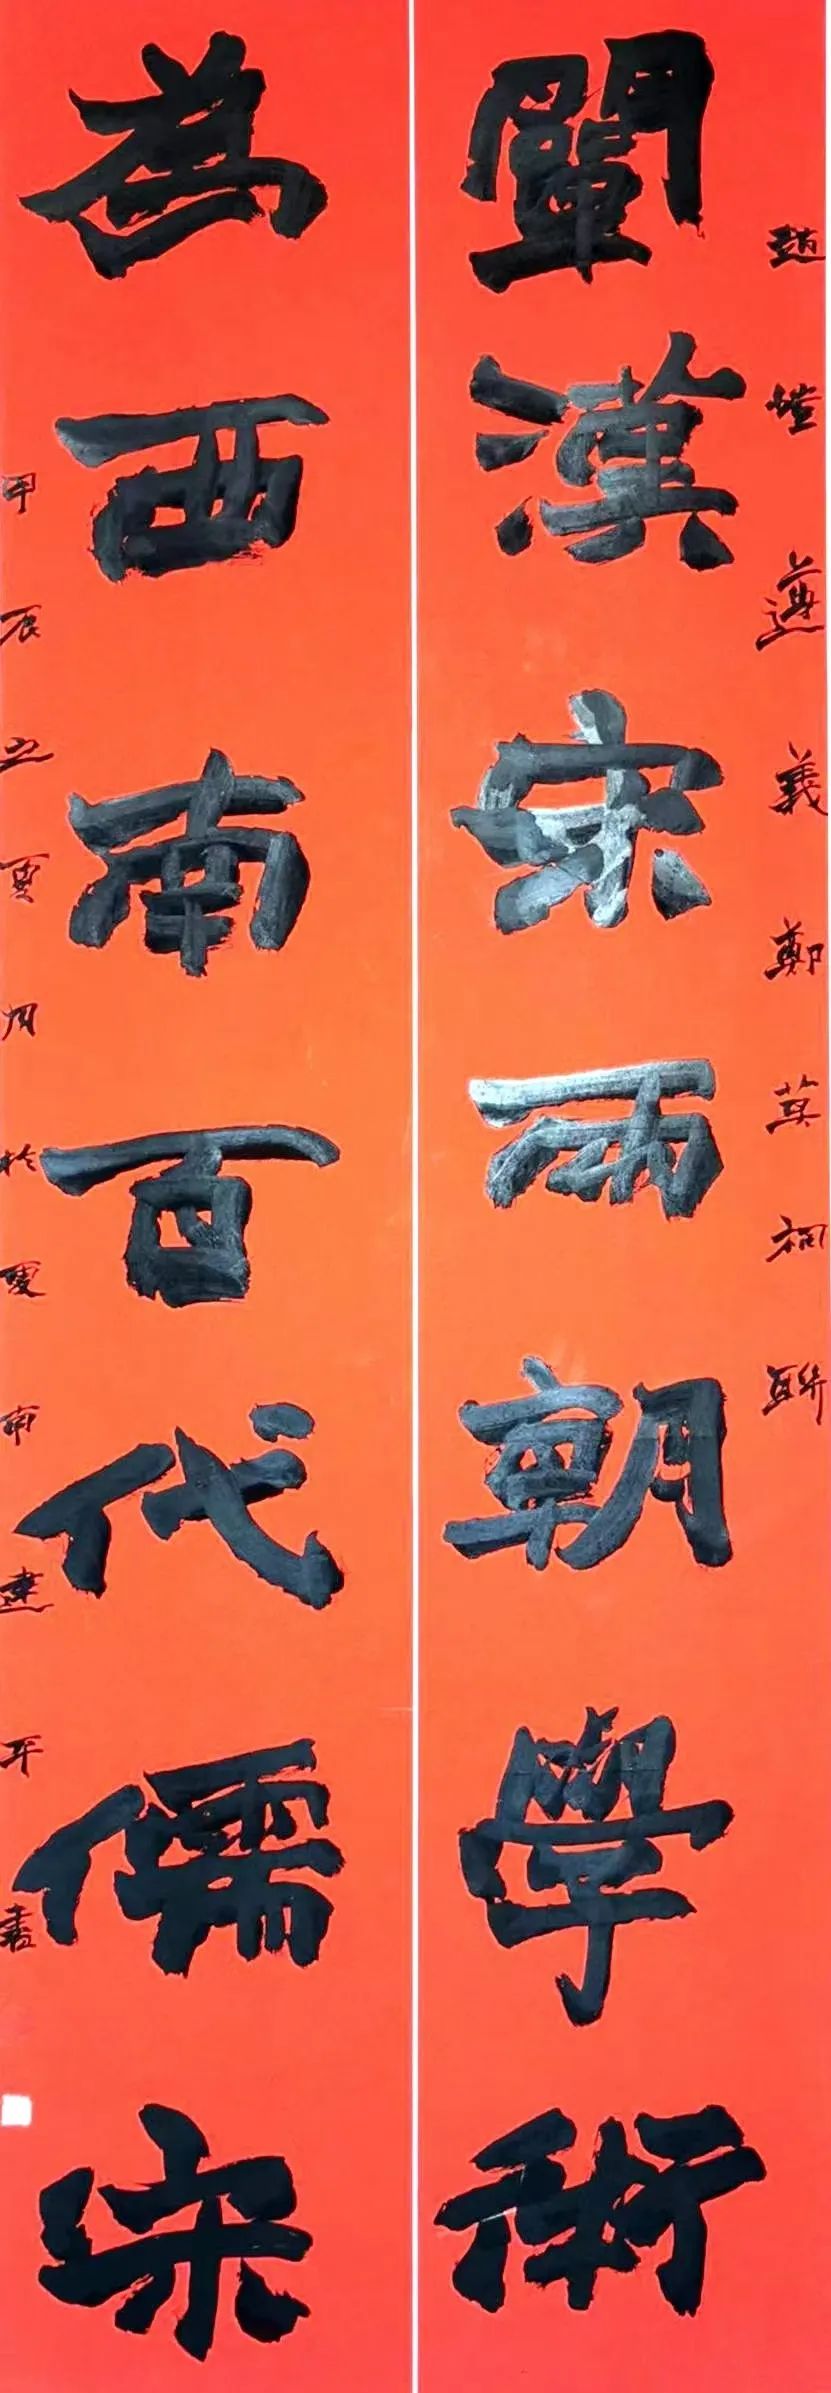 趙愷遵義鄭莫祠聯
闡漢宋兩朝學術
為西南百代儒宗
甲辰之夏月於建平書